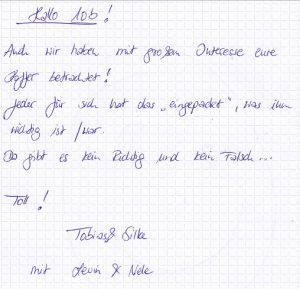 Hallo 10b!
Auch wir haben mit großem Interesse eure
Koffer betrachtet!
Jeder für sich hat das „eingepackt", was ihm
wichtig ist / war.
Da gibt es kein Richtig und kein Falsch...
Toll!
Tobias & Silke
mit Levin & Nele